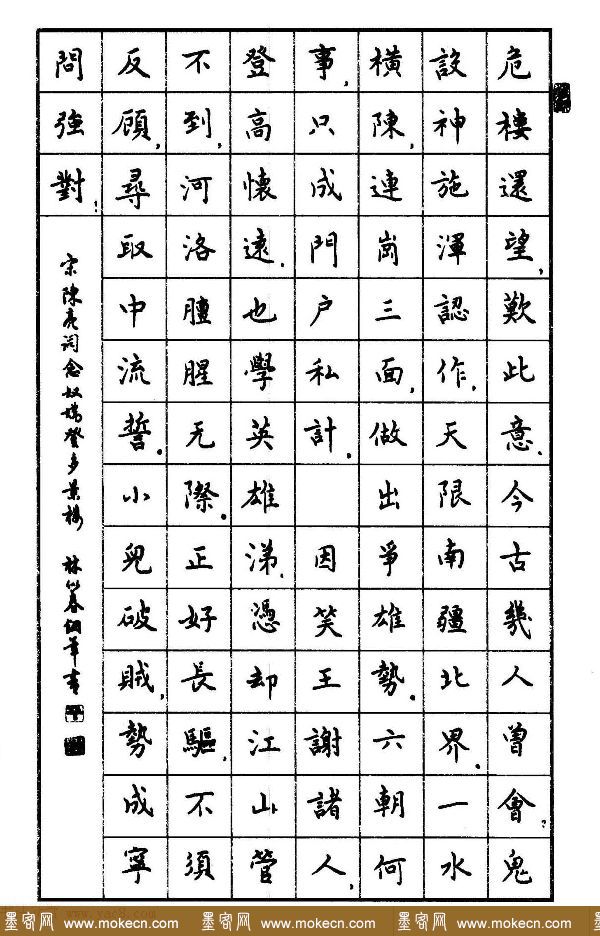 危樓還望,歎此意。今古幾人曾會;鬼
設神施渾認作。天限南疆北界。一水
橫陳,連崗三面,做出爭雄勢。六朝何
事,只成門户私計。 因笑王謝諸人,
登高懷遠。也學英雄涕。憑却江山管
不到,河洛膻腥无際。正好長驅,不須
反顧,尋取中流誓。小兒破賊,勢成寧
問強對!
宋陳亮詞念奴嬌登多景樓 林 鋼筆書
墨客网 www.mokecn.com 墨客网 www.mokecn.com 墨客网 www.mokecn.com